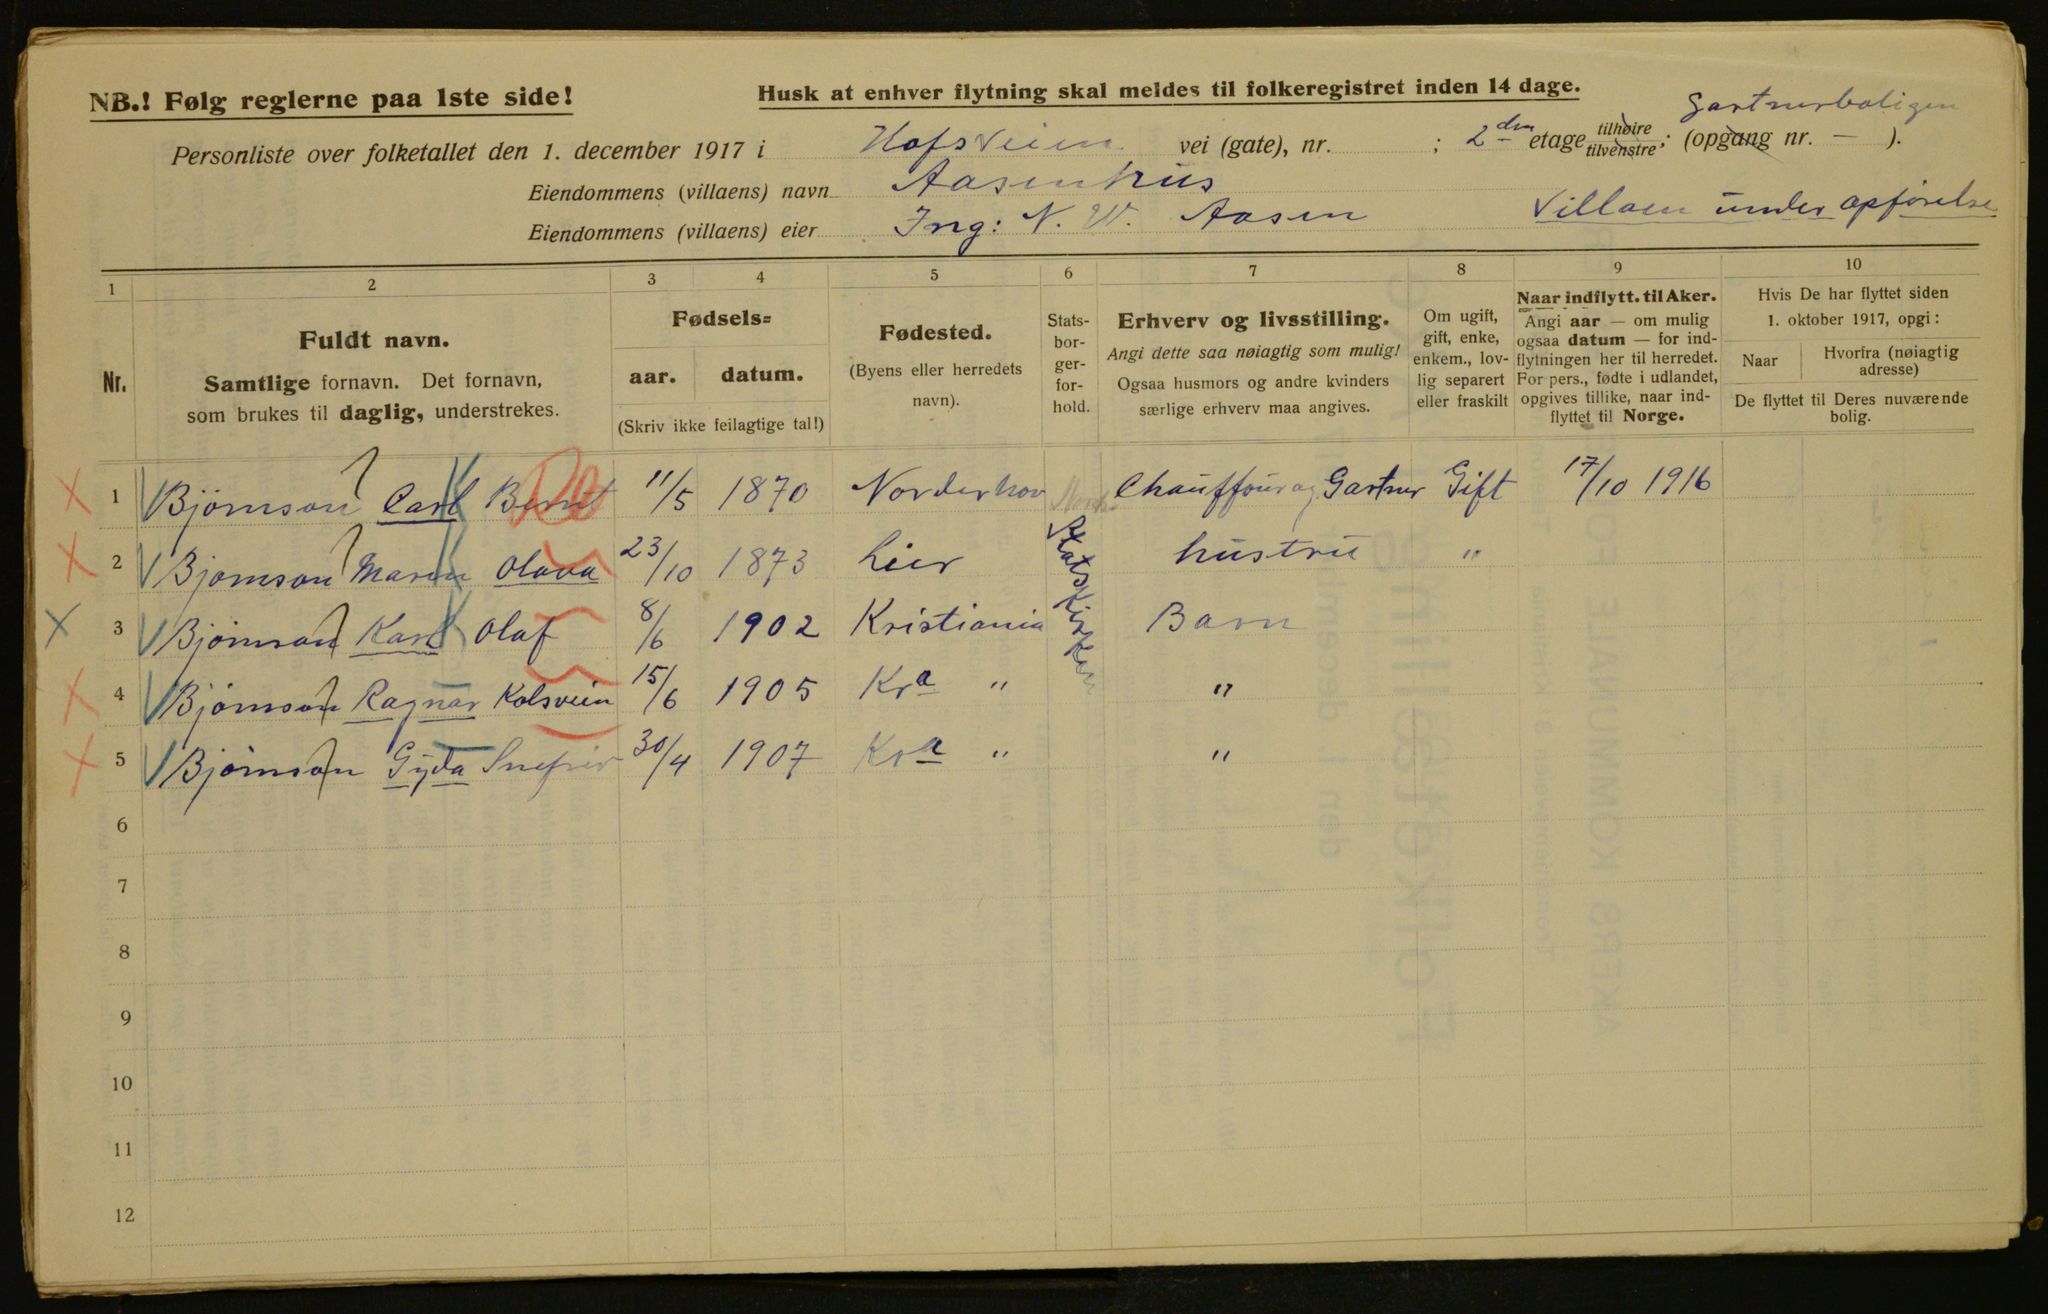 NB.! Følg reglerne paa 1ste side!
Husk at enhver flytning skal meldes til folkeregistret inden 14 dage.
Gartnerboligen
Personliste over folketallet den 1. december 1917 i Hofsveien vei (gate), nr. ; 2den etage tilhøire tilvenstre; (opgang nr. — ).
Eiendommens (villaens) navn Aasenhus
Eiendommens (villaens) eier Ing: N. W. Aasen Villaen under opførelse
1 2 3 4 5 6 7 8 9 10
Nr.
Fuldt navn.
Samtlige fornavn. Det fornavn,
som brukes til daglig, understrekes.
Fødsels=
aar. datum.
(Skriv ikke feilagtige tal!)
Fødested.
(Byens eller herredets
navn).
Stats-
bor-
ger-
for-
hold.
Erhverv og livsstilling.
Angi dette saa nøiagtig som mulig!
Ogsaa husmors og andre kvinders
særlige erhverv maa angives.
Om ugift,
gift, enke,
enkem., lov-
lig separert
eller fraskilt
Naar indflytt. til Aker.
Angi aar — om mulig
ogsaa datum — for ind-
flytningen her til herredet.
For pers., fødte i udlandet,
opgives tillike, naar ind-
flyttet til Norge.
Hvis De har flyttet siden
1. oktober 1917, opgi:
Naar Hvorfra (nøiagtig
adresse)
De flyttet til Deres nuværende
bolig.
1 Bjørnson Carl Bernt 11/5 1870 Norderhov Norsk Chauffour og Gartner Gift 17/10 1916
2 Bjørnson Maren Olava 23/10 1873 Lier Hustru "
Statskirken
3 Bjørnson Karl Olaf 8/6 1902 Kristiania Barn
4 Bjørnson Ragnar Kolsvein 15/6 1905 Kra " "
5 Bjørnson Gyda Snefrid 30/4 1907 Kra " "
6
7
8
9
10
11
12